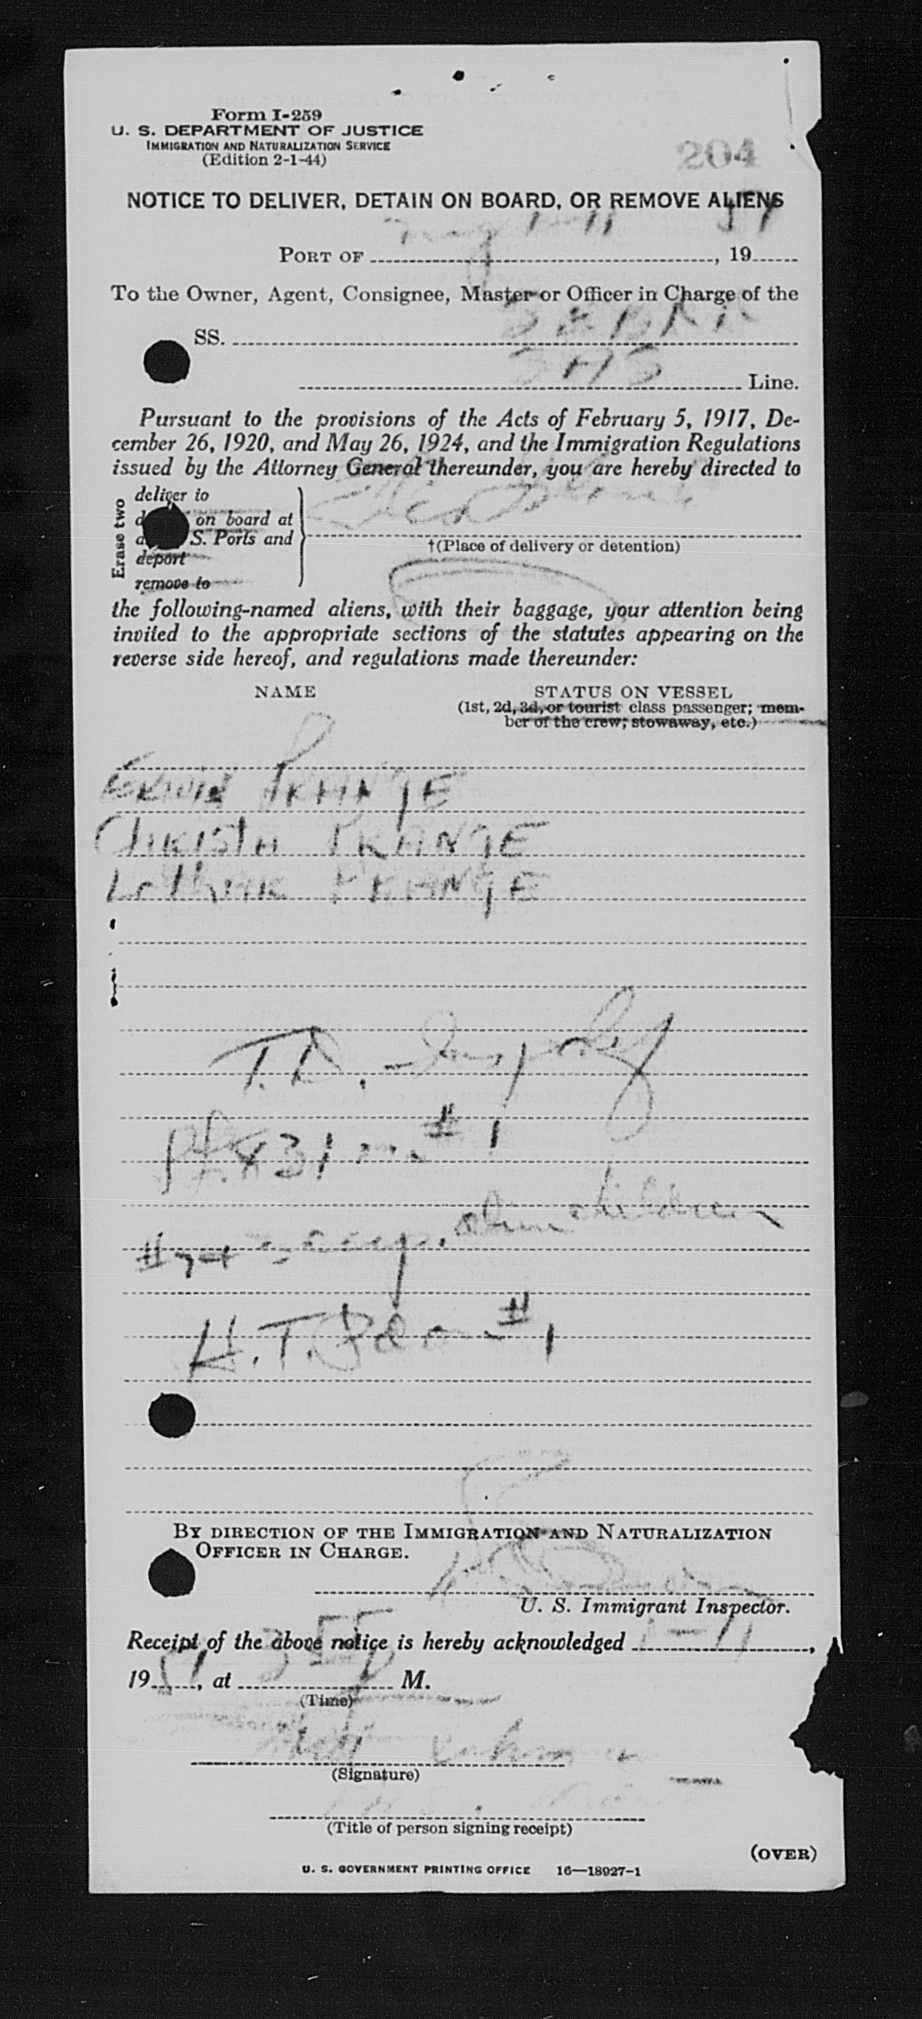 Form I-259
U. S. DEPARTMENT OF JUSTICE
IMMIGRATION AND NATURALIZATION SERVICE
(Edition 2-1-44)
204
NOTICE TO DELIVER, DETAIN ON BOARD, OR REMOVE ALIENS
PORT OF 1-11, 19 51
To the Owner, Agent, Consignee, Master or Officer in Charge of the
SS.
Line.
Pursuant to the provisions of the Acts of February 5, 1917, De-
cember 26, 1920, and May 26, 1924, and the Immigration Regulations
issued by the Attorney General thereunder, you are hereby directed to
Erase two
deliver to
on board at
S. Ports and
deport
remove to
†(Place of delivery or detention)
the following-named aliens, with their baggage, your attention being
invited to the appropriate sections of the statutes appearing on the
reverse side hereof, and regulations made thereunder:
NAME STATUS ON VESSEL
(1st, 2d, 3d, or tourist class passenger; mem-
ber of the crew; stowaway, etc.)
ERWIN PRANGE
CHRISTA PRANGE
LOTHAR PRANGE
T.D.
#1
accep. alien children
H.T. #1
BY DIRECTION OF THE IMMIGRATION AND NATURALIZATION
OFFICER IN CHARGE.
U. S. Immigrant Inspector.
Receipt of the above notice is hereby acknowledged 1-11,
19 51, at 3 55 P M.
(Time)
(Signature)
(Title of person signing receipt)
(OVER)
U. S. GOVERNMENT PRINTING OFFICE 16—18927-1